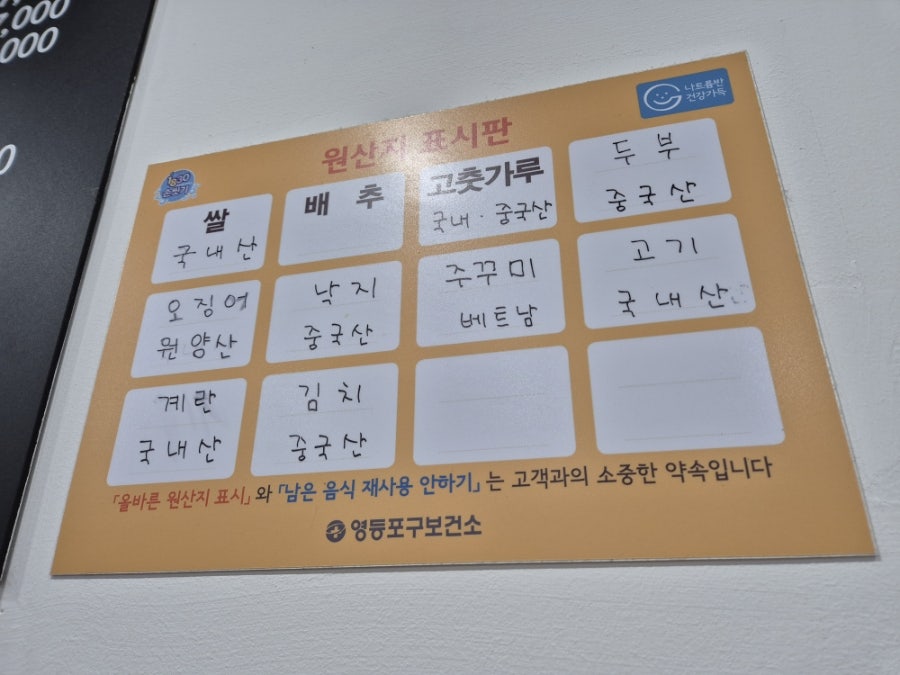 7,000
,000
0
나트륨반
건강가득
원산지 표시판
1530
쌀
국내산
배추
고춧가루
국내·중국산
두부
중국산
오징어
원양산
낙지
중국산
주꾸미
베트남
고기
국내산
계란
국내산
김치
중국산
「올바른 원산지 표시」와 「남은 음식 재사용 안하기」는 고객과의 소중한 약속입니다
영등포구보건소